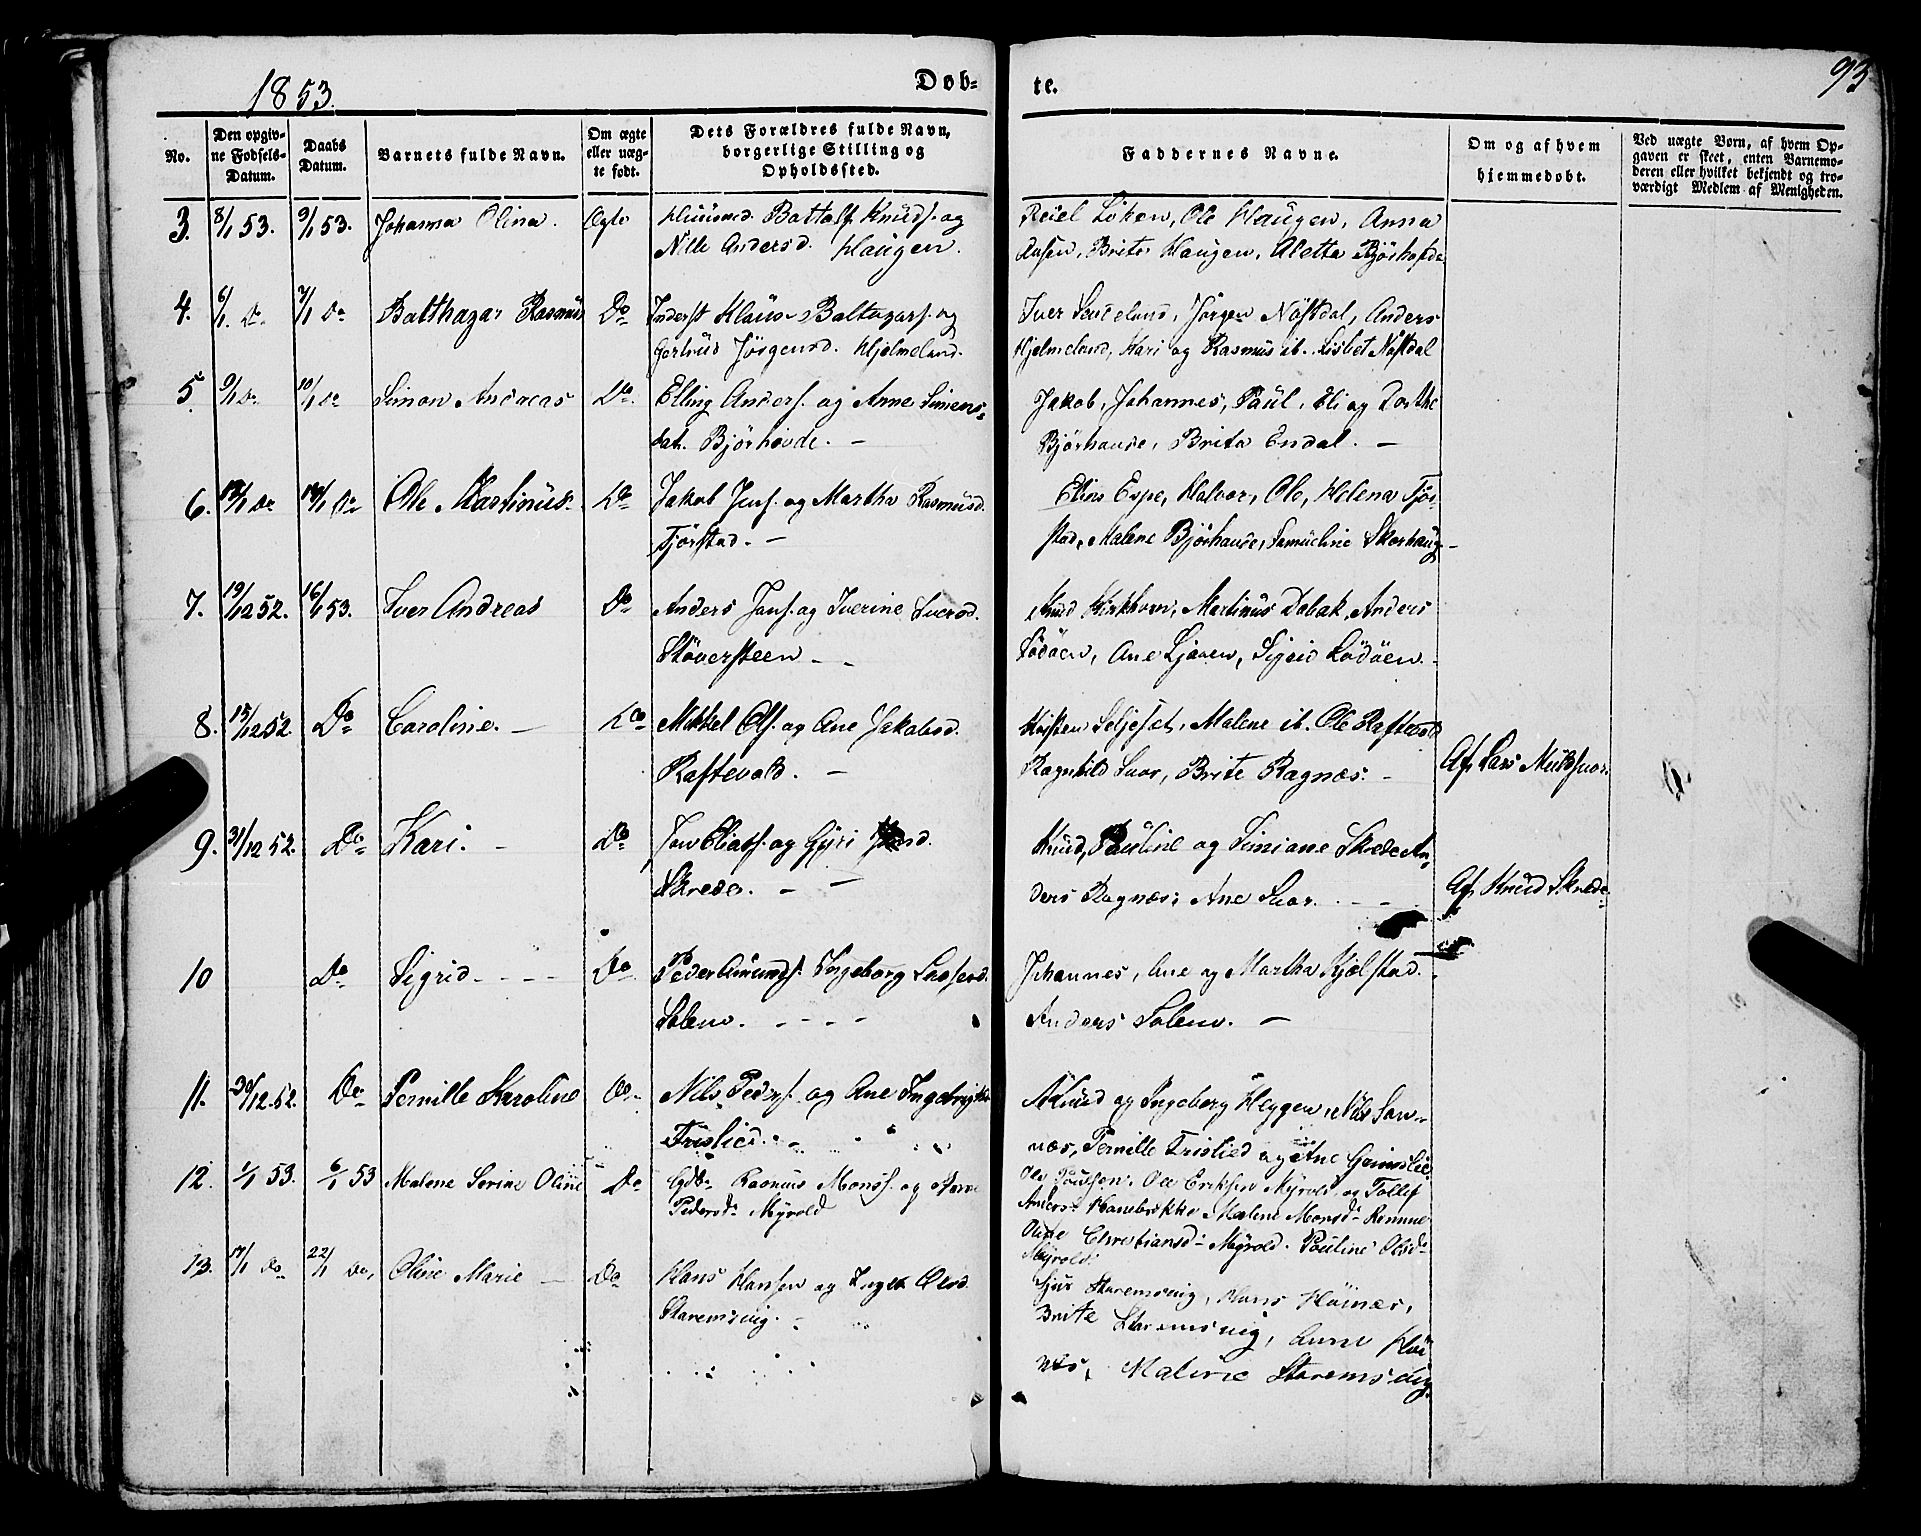 1853.
Døb-
te.
93
No.
Den opgiv-
ne Fødsels-
Datum.
Daabs
Datum.
Barnets fulde Navn.
Om ægte
eller uæg-
te født.
Dets Forældres fulde Navn,
borgerlige Stilling og
Opholdssted.
Faddernes Navne.
Om og af hvem
hjemmedøbt.
Ved uægte Børn, af hvem Op-
gaven er skeet, enten Barnemo-
deren eller hvilket bekjendt og tro-
værdigt Medlem af Menigheden.
3. 8/1 53. 9/1 53. Johanna Olina. Ægte Huusmd. Battolf Knudf. og
Nille Andersd. Haugen.
Løken, Ole Haugen, Anna
Aasen, Brite Haugen, Aletta
4. 6/1 Do 7/1 Do Balthazar Rasmus Do Inderst Klaus Baltazarf. og
Gertrud Jørgensd. Hjelmeland.
Iver Jørgen Nøstdal, Anders
Hjelmeland, Kari og Rasmus ib. Lisbet Nøstdal
5. 9/1 Do 10/1 Do Simon Andreas Do. Elling Andersf. og Anne Simens-
dat. Bjørhovde. —
Jakob, Johannes, Paul, Eli og Dorthe
Bjørhaude, Brita Endal. —
6. 13/1 Do Do Ole Martinus. Do Jakob Jensf. og Martha Rasmusd.
Tjørstad. —
Elias Espe, Halvor, Ole, Helena Tjør-
stad, Malene Bjørhaude, Samueline Skorhaug—
7. 19/12 52. 16/1 53. Iver Andreas Do Anders Jansf. og Iverine Iversd.
Støversteen — —
Knud Kirkhorn, Martinus Dabak, Anders
Lødøen, Ane Ljøoen, Sigrid Lødøen.
8. 15/12 52. Do Caroline. — Do Mikkel Olsf. og Ane Jakobsd.
Raftevold. —
Kristen Seljeset, Malene ib. Ole Raftevold
Ragnhild Suor, Brite Ragnæs. —
Af Lars
9. 31/12 52. Do Kari. — Do Jon Eliasf. og Gyri
Skrede. — —
Knud, Pauline og Simiane Skrede An-
ders Ragnæs, Ane Suor.
Af Knud Skrede.
10 Do Sigrid - - - - Do Peder Amundsf. Ingeborg Lassesd.
Solem. - - - -
Johannes, Ane og Martha Kjølstad.
Anders Solem. —
11. 30/12.52. Do Pernille Karoline Do. Nils Pedersf. og Ane
Frislied.
Knud og Ingeborg Heggen, Nils San-
næs, Pernille Frislied og Ane
12. 1/1 53. 6/1 53 Malene Serine Oline Do Rasmus Monsf. og
Pedersdr Myrold
Ole Paulsen, Ole Eriksen Myrold og Tollef
Anders. Hanebrække Malene Monsdr
Oline Christiansdr Myrold. Pauline Olsdr
Myrold.
13. 17/1 Do 22/1 Do, Oline Marie — Do Hans Hansen og Inger Olsd.
Staremsvig. —
Sjur Staremsvig, Hans Høinæs,
Brite Staremsvig, Anne Høi
næs, Malene Staremsvig